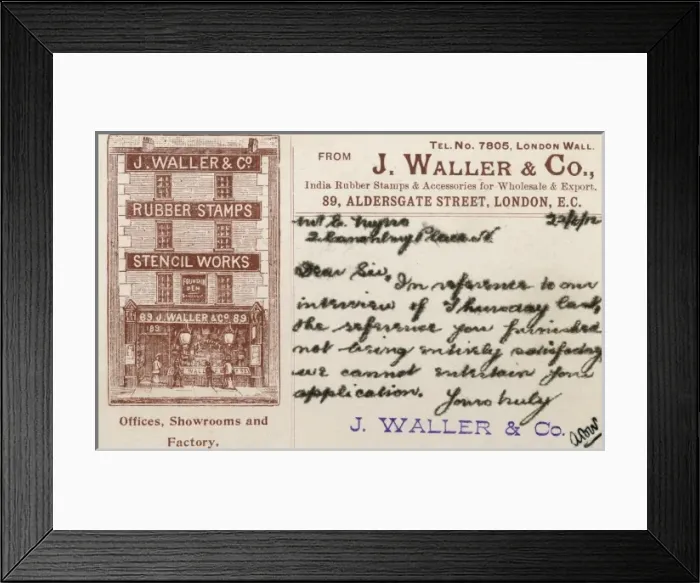 J. WALLER & Co
RUBBER STAMPS
STENCIL WORKS
FOUNTAIN
PEN
89 J. WALLER & Co. 89
89
Offices, Showrooms and
Factory.
TEL. No. 7805, LONDON WALL.
FROM
J. WALLER & Co.,
India Rubber Stamps & Accessories for Wholesale & Export.
89, ALDERSGATE STREET, LONDON, E.C.
Place
Dear Sir,
In reference to our
interview of Thursday last,
the reference you furnished
not being entirely satisfactory
we cannot entertain your
application.
Yours truly
J. WALLER & Co.